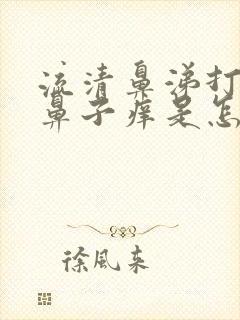 流清鼻涕打
鼻子痒是怎
徐风来